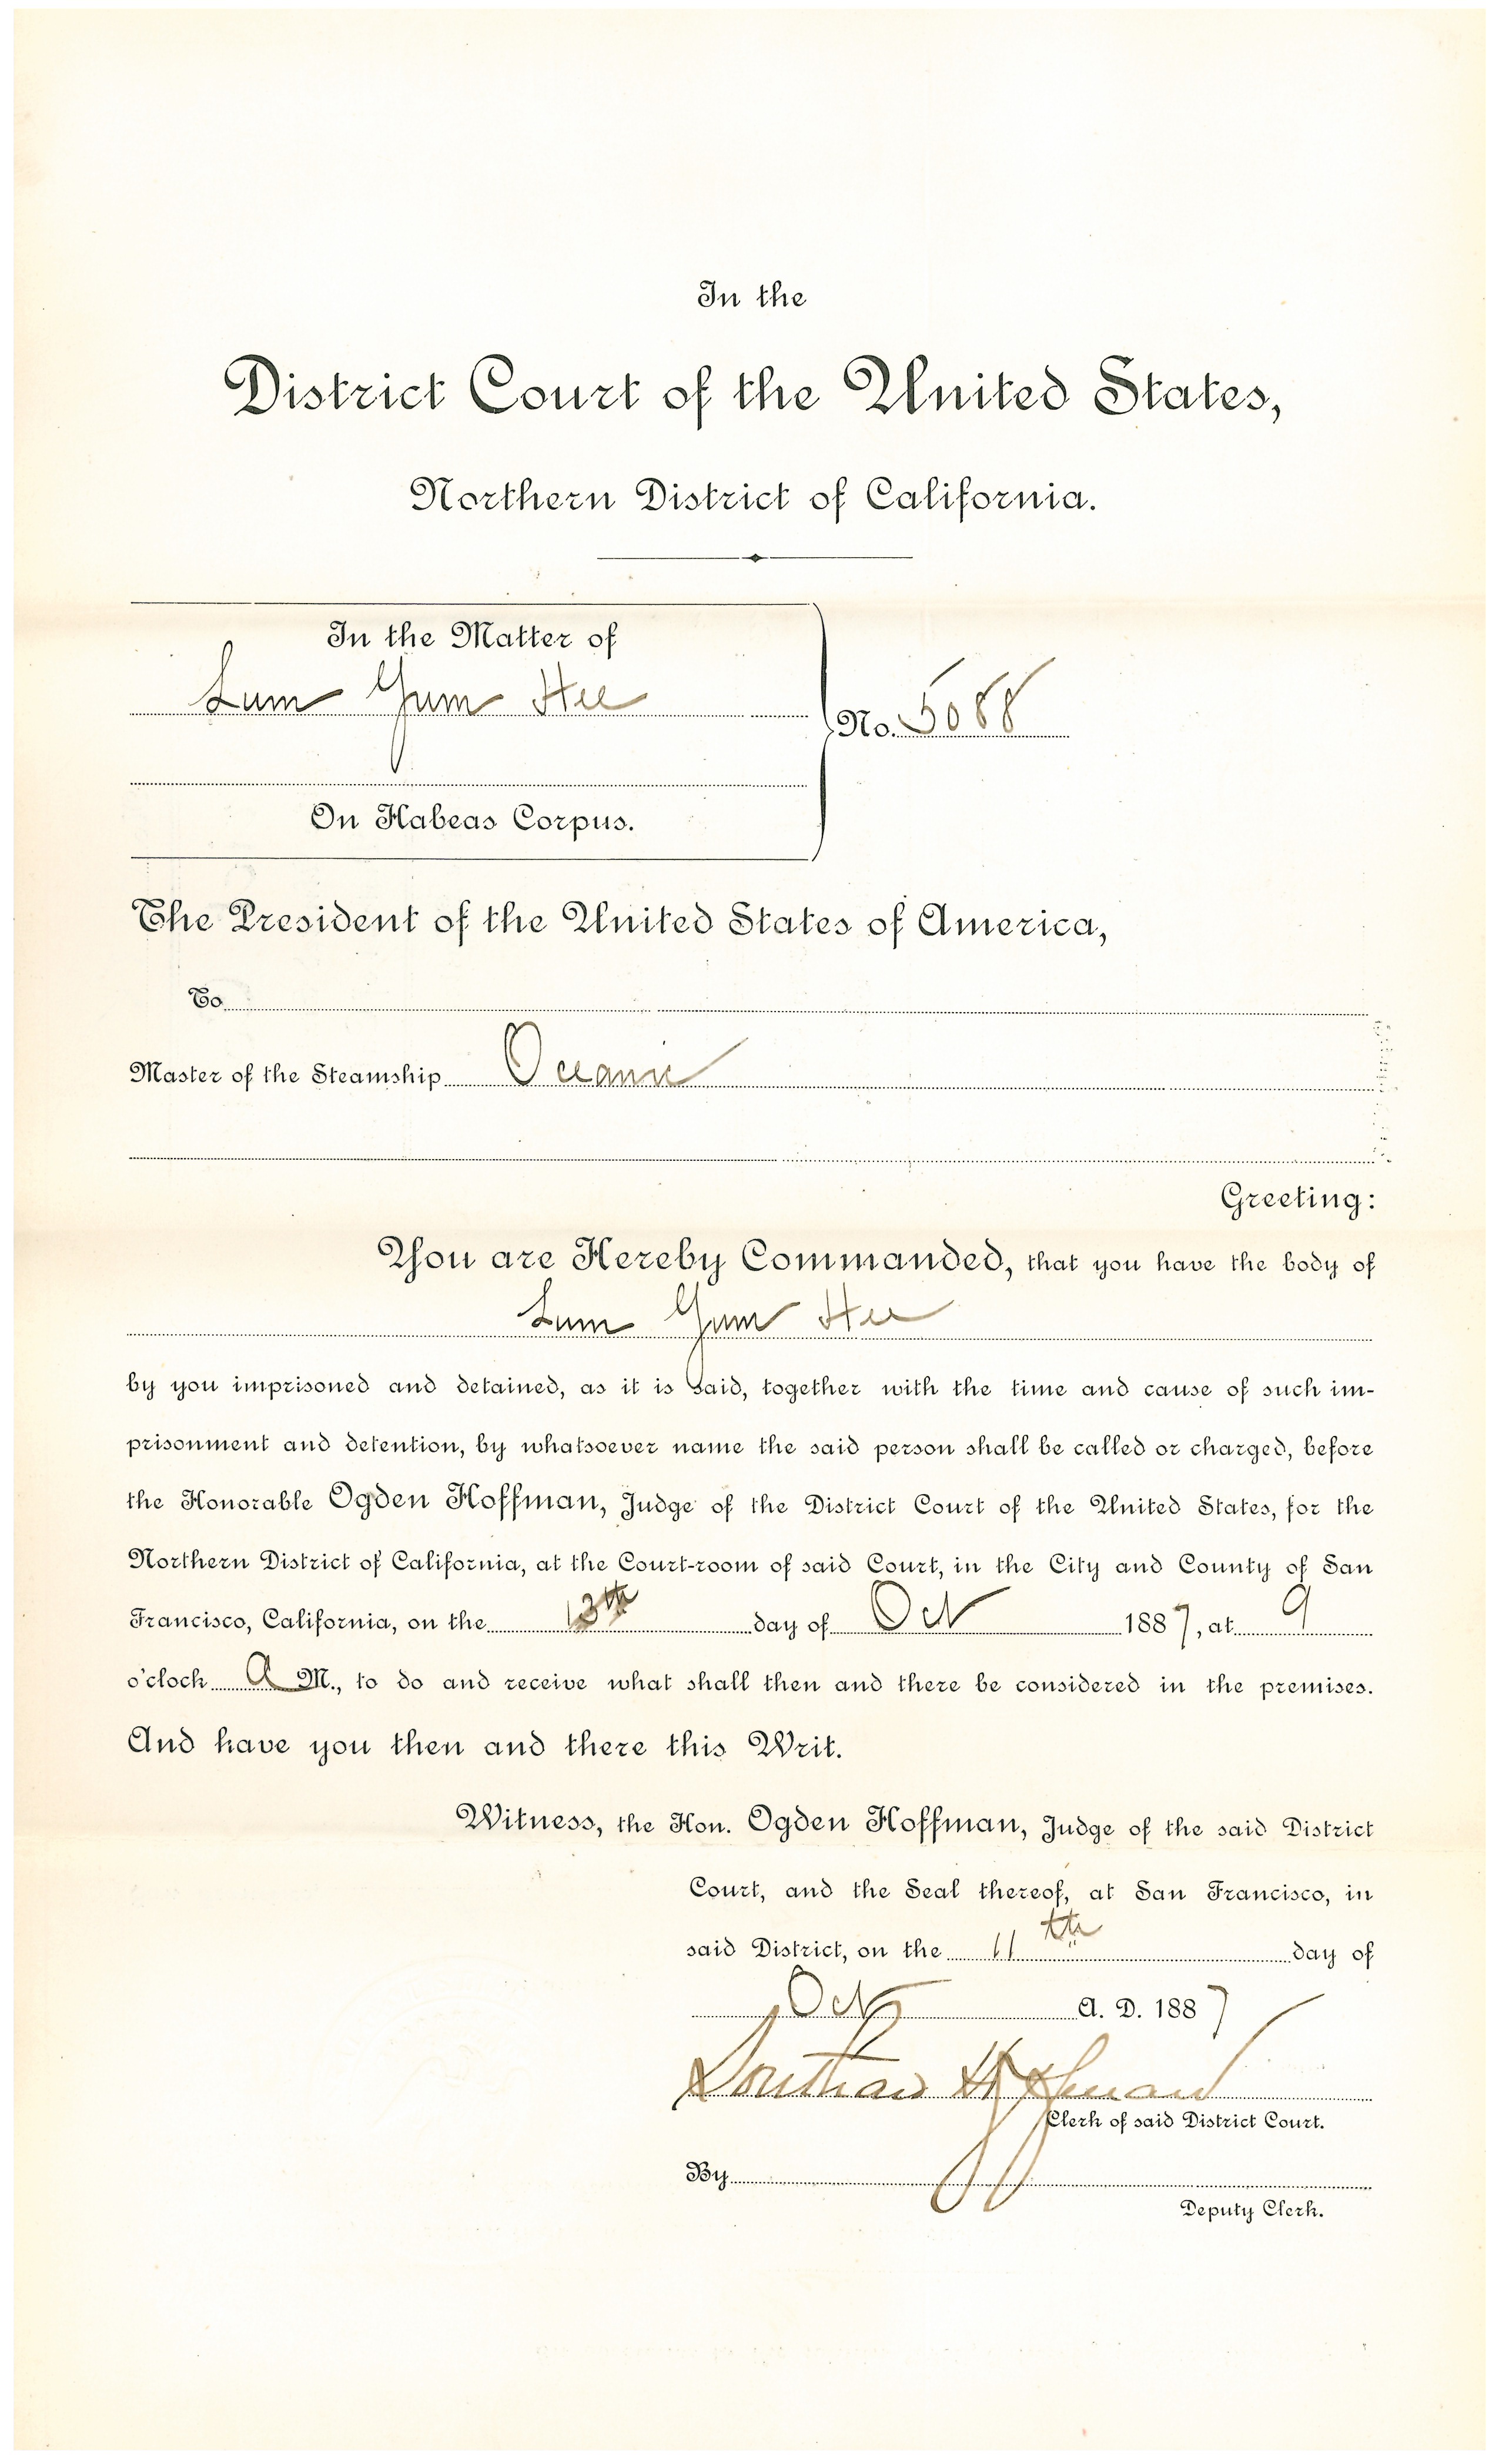 In the
District Court of the United States,
Northern District of California.
In the Matter of
Lum Gum Hee
No. 5088
On Habeas Corpus.
The President of the United States of America,
To
Master of the Steamship Oceanic
Greeting:
You are Hereby Commanded, that you have the body of
Lum Gum Hee
by you imprisoned and detained, as it is said, together with the time and cause of such im-
prisonment and detention, by whatsoever name the said person shall be called or charged, before
the Honorable Ogden Hoffman, Judge of the District Court of the United States, for the
Northern District of California, at the Court-room of said Court, in the City and County of San
Francisco, California, on the 13th day of Oct 1887, at 9
o'clock A M., to do and receive what shall then and there be considered in the premises.
And have you then and there this Writ.
Witness, the Hon. Ogden Hoffman, Judge of the said District
Court, and the Seal thereof, at San Francisco, in
said District, on the 11th day of
Oct A. D. 1887
Southard Hoffman
Clerk of said District Court.
By
Deputy Clerk.